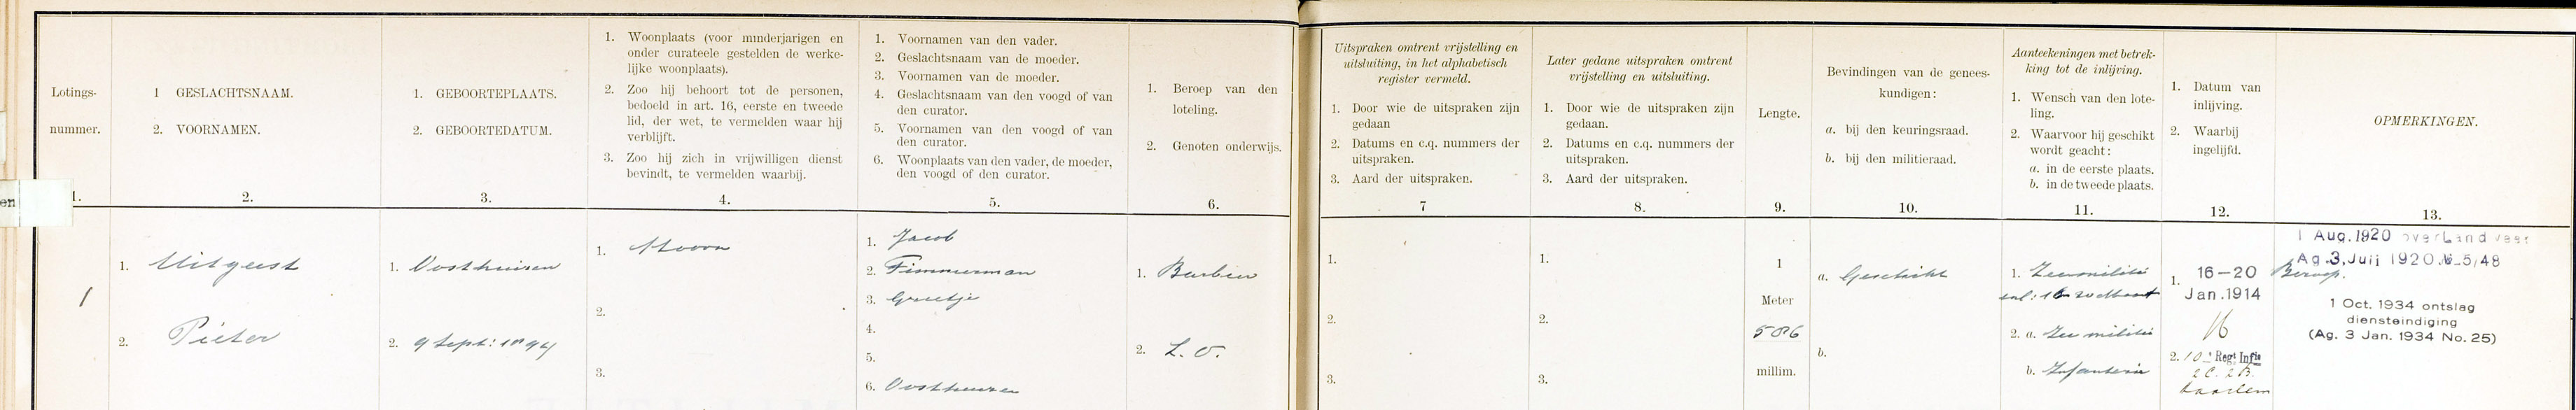 Lotings-
nummer.
1.
1 GESLACHTSNAAM.
2. VOORNAMEN.
2.
1. GEBOORTEPLAATS.
2. GEBOORTEDATUM.
3.
1. Woonplaats (voor minderjarigen en
onder curateele gestelden de werke-
lijke woonplaats).
2. Zoo hij behoort tot de personen,
bedoeld in art. 16, eerste en tweede
lid, der wet, te vermelden waar hij
verblijft.
3. Zoo hij zich in vrijwilligen dienst
bevindt, te vermelden waarbij.
4.
1. Voornamen van den vader.
2. Geslachtsnaam van de moeder.
3. Voornamen van de moeder.
4. Geslachtsnaam van den voogd of van
den curator.
5. Voornamen van den voogd of van
den curator.
6. Woonplaats van den vader, de moeder,
den voogd of den curator.
5.
1. Beroep van den
loteling.
2. Genoten onderwijs.
6.
Uitspraken omtrent vrijstelling en
uitsluiting, in het alphabetisch
register vermeld.
1. Door wie de uitspraken zijn
gedaan
2. Datums en c.q. nummers der
uitspraken.
3. Aard der uitspraken.
7
Later gedane uitspraken omtrent
vrijstelling en uitsluiting.
1. Door wie de uitspraken zijn
gedaan.
2. Datums en c.q. nummers der
uitspraken.
3. Aard der uitspraken.
8.
Lengte.
9.
Bevindingen van de genees-
kundigen:
a. bij den keuringsraad.
b. bij den militieraad.
10.
Aanteekeningen met betrek-
king tot de inlijving.
1. Wensch van den lote-
ling.
2. Waarvoor hij geschikt
wordt geacht:
a. in de eerste plaats.
b. in de tweede plaats.
11.
1. Datum van
inlijving.
2. Waarbij
ingelijfd.
12.
OPMERKINGEN.
13.
en
1
1. Uitgeest
2. Pieter
1. Oosthuizen
2. 9 Sept: 1894
1. Hoorn
2.
3.
1. Jacob
2. Timmerman
3. Grietje
4.
5.
6. Oosthuizen
1. Barbier
2. L. O.
1.
2.
3.
1.
2.
3.
1
Meter
586
millim.
a. Geschikt
b.
1. Zeemilitie
2. a. Zeemilitie
b. Infanterie
1. 16-20
Jan. 1914
16
2. 10e Regt Infie
2 C. 2 B.
Haarlem
1 Aug. 1920 over Landweer
Ag. 3, Juij 1920 № 5/48
Beroep.
1 Oct. 1934 ontslag
diensteindiging
(Ag. 3 Jan. 1934 No. 25)